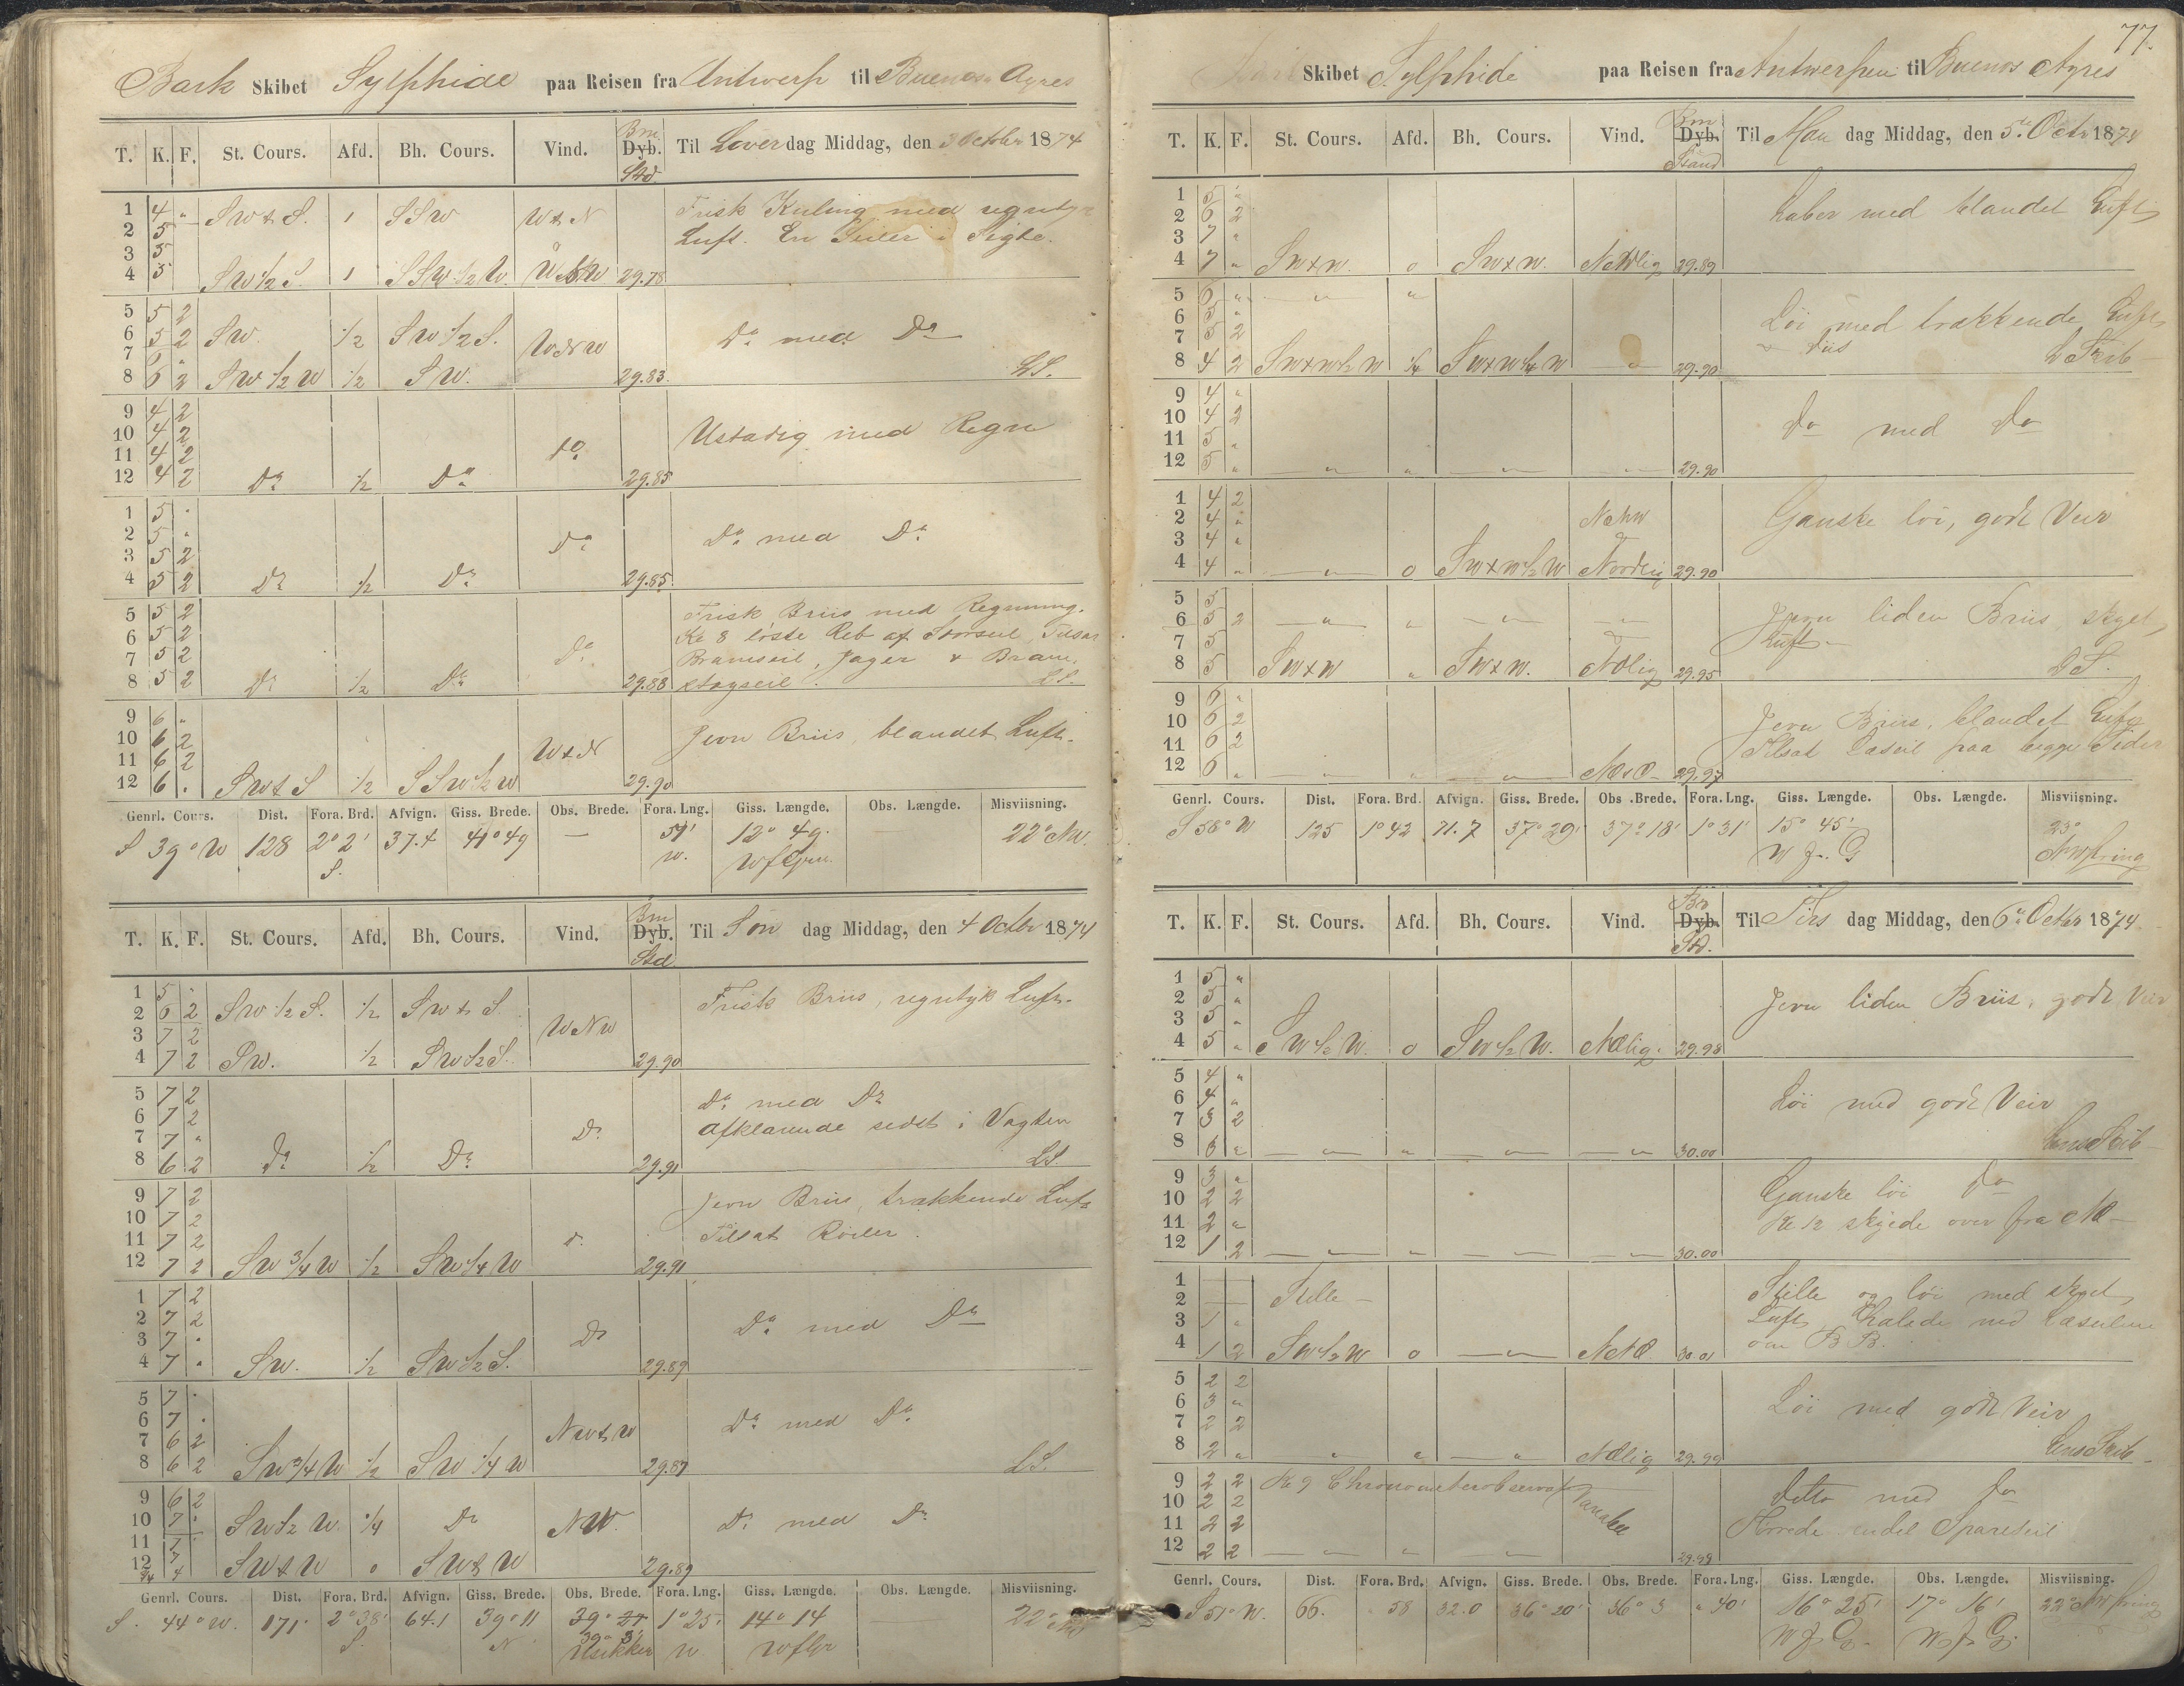 Bark Skibet Sylphide paa Reisen fra Antwerp til Buenos Ayres
T. K. F. St. Cours. Afd. Bh. Cours. Vind. Bm. Dyb. Std Til Løver dag Middag, den 3 Octbr 1874
1 4 " SW t S. 1 SSW W t N Frisk Kuling med regntyk
2 5 Luft. En Seiler i Sigte.
3 5
4 5 SW 1/2 S. 1 SSW 1/2 W. 29.78
5 5 2
6 5 2 SW. 1/2 SW 1/2 S. WNW Do med Do
7 6 "
8 6 2 SW 1/2 W 1/2 SW. 29.83 LS.
9 4 2
10 4 2 Ustadig med Regn
11 4 2 Do
12 4 2 Do 1/2 Do 29.85
1 5 "
2 5 " Do Do med Do
3 5 2
4 5 2 Do 1/2 Do 29.85
5 5 2 Frisk Briis med Regning.
6 5 2 Kl 8 løste Reb af Storseil, Tilsat
7 5 2 Do Bramseil, Jager & Bram
8 5 2 Do 1/2 Do 29.88 stagseil. LS.
9 6 "
10 6 2 W t N Jevn Briis, blandet Luft.
11 6 2
12 6 . SW t S 1/2 SSW 1/2 W 29.90
Genrl. Cours. Dist. Fora. Brd. Afvign. Giss. Brede. Obs. Brede. Fora. Lng. Giss. Længde. Obs. Længde. Misviisning.
S 39° W 128 2° 2' 37.4 41° 49 — 51' 12° 49. 22° NW.
S. W. W f Grw.
T. K. F. St. Cours. Afd. Bh. Cours. Vind. Bm Dyb. Std Til Søn dag Middag, den 4 Octbr 1874
1 5 . Frisk Briis, regntyk Luft.
2 6 2 SW 1/2 S. 1/2 SW t S.
3 7 2 WNW
4 7 2 SW. 1/2 SW 1/2 S. 29.90
5 7 2 Do med Do
6 7 2 Do Afklarende sidst i Vagten
7 7 "
8 6 2 Do 1/2 Do 29.91 LS.
9 7 2 Jevn Briis, trækkende Luft
10 7 2 Tilsat Røiler.
11 7 2 Do
12 7 2 SW 3/4 W 1/2 SW 1/4 W 29.91
1 7 2
2 7 2 Do Do med Do
3 7 .
4 7 . SW. 1/2 SW 1/2 S. 29.89
5 7 .
6 7 . NW t W Do med Do
7 6 2
8 6 2 SW 3/4 W 1/2 SW 1/4 W 29.87 LS.
9 6 2
10 7 . SW 1/2 W. 1/4 Do NW. Do med Do
11 7
12 7 SW t W 0 SW t W 29.89
Genrl. Cours. Dist. Fora. Brd. Afvign. Giss. Brede. Obs. Brede. Fora. Lng. Giss. Længde. Obs. Længde. Misviisning.
S. 44° W. 171' 2° 38' 64.1 39° 11 39° 1° 25' 14° 14 22°
S. N Usikker W W f Gr
77.
Skibet Sylphide paa Reisen fra Antwerpen til Buenos Ayres
T. K. F. St. Cours. Afd. Bh. Cours. Vind. Bm Dyb. Stand Til Man dag Middag, den 5te Octbr 1874
1 5 " Laber med blandet Luft
2 6 2
3 7 "
4 7 " SW x W. 0 SW x W. 29.89
5 6 " — " — "
6 5 " Løi med trækkende Luft
7 5 2 Diis
8 4 2 SW x W 1/2 W 1/4 SW x W 1/4 W — 29.90
9 4 "
10 4 2 do med do
11 5 "
12 5 " — " — " — " — " — 29.90
1 4 2
2 4 " Ganske løi, godt Veir
3 4 "
4 4 " — " — 0 SW x W 1/2 W Nordlig 29.90
5 5
6 5 2 — " — " — " — — " — Jevn liden Briis, skyet
7 5 Luft
8 5 SW x W " SW x W. NOlig 29.95
9 6 "
10 6 2 Jevn Briis, blandet Luft
11 6 2 Tilsat Læseil paa begge Sider
12 6 " — " — " — " — 29.97
Genrl. Cours. Dist. Fora. Brd. Afvign. Giss. Brede. Obs. Brede. Fora. Lng. Giss. Længde. Obs. Længde. Misviisning.
S 58° W 125 1° 42 71.7 37° 29' 37° 18' 1° 31' 15° 45' 23°
W f. G
T. K. F. St. Cours. Afd. Bh. Cours. Vind. Br Dyb. Std. Til Tirs dag Middag, den 6te Octbr 1874
1 5 " Jevn liden Briis, godt Veir
2 5 "
3 5 "
4 5 " SW 1/2 W. 0 SW 1/2 W. NOlig. 29.98
5 4 "
6 4 " Løi med godt Veir
7 3 2
8 3 " — " — " — " — — " 30.00
9 3 " Ganske løi do
10 2 2 Kl 12 skyede over fra NO
11 2 "
12 1 2 — " — " — " — — " — 30.00
1 — Stille og løi med skyet
2 — Stille — Luft, Halede ned Læseilene
3 1 " om BB.
4 1 2 SW 1/2 W 0 — " — 30.01
5 2 2
6 3 " Løi med godt Veir
7 2 2
8 2 " " " — " NOlig 29.99
9 2 2 Kl 9 Chronometerobservat
10 2 2 Variabel ditto med do
11 2 2 endel Spareseil
12 2 2 — " — " — " 29.99
Genrl. Cours. Dist. Fora. Brd. Afvign. Giss. Brede. Obs. Brede. Fora. Lng. Giss. Længde. Obs. Længde. Misviisning.
S 51° W. 66. 58 32.0 36° 20' 36° 3 " 40' 16° 25' 17° 16' 22°
W f G. W f G.